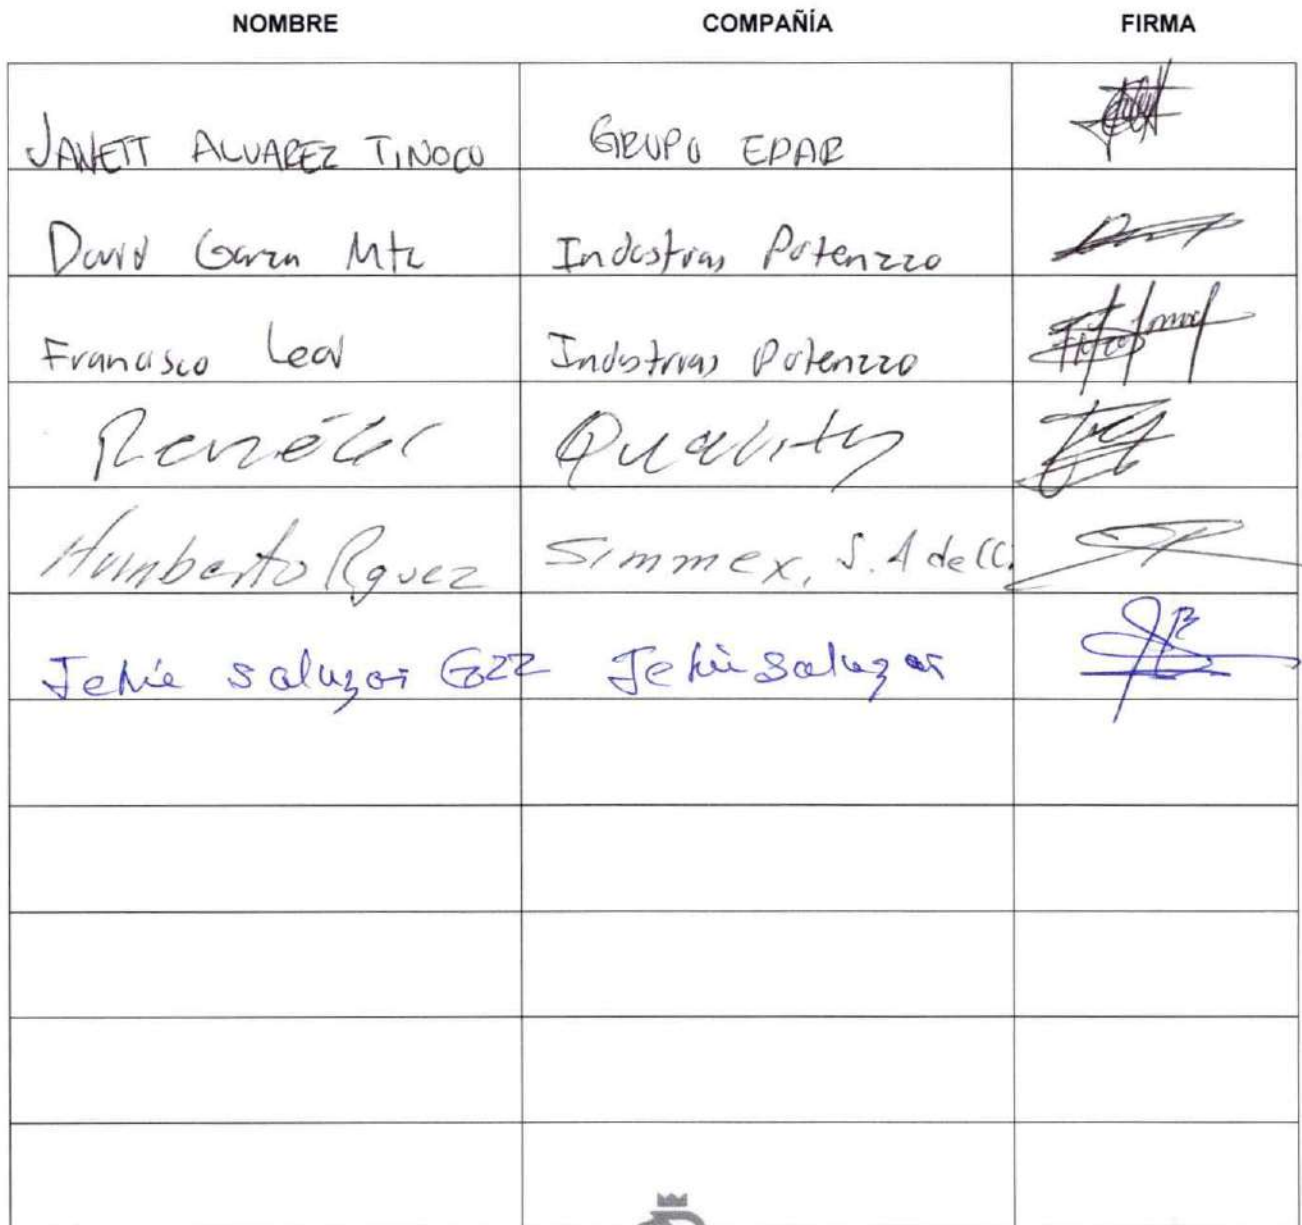 NOMBRE COMPAÑÍA FIRMA
JANETT ALVAREZ TINOCO GRUPO EPAR
David Garza Mtz Industrias Potenzzo
Francisco Leal Industrias Potenzzo
Quality
Humberto Rguez Simmex, S.A de C.
Jehú Salazar Gzz Jehú Salazar